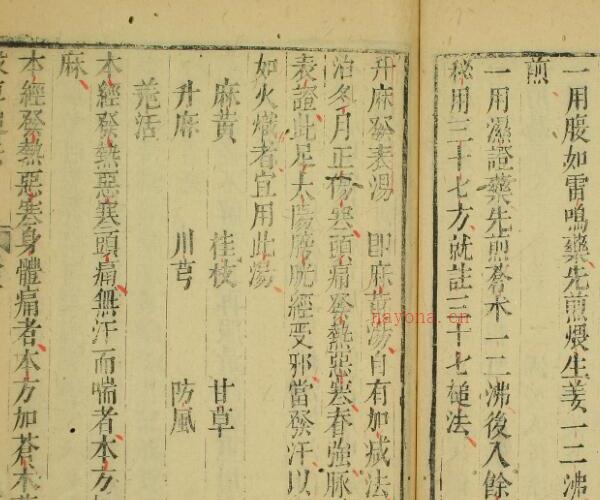 一用腹如雷鳴藥先煎煨生姜一二沸
煎
一用濕證藥先煎蒼木一二沸後入餘
秘用三十七方就註三十七槌法
升麻發表湯 即麻黃湯自有加減法
治冬月正傷寒頭痛發熱惡寒脊強脉
表證此足太陽膀胱經受邪當發汗以
如火熾者宜用此湯
麻黃 桂枝 甘草
升麻 川芎 防風
羗活
本經發熱惡寒頭痛無汗而喘者本方
麻
本經發熱惡寒身體痛者本方加蒼木
nayona.cn